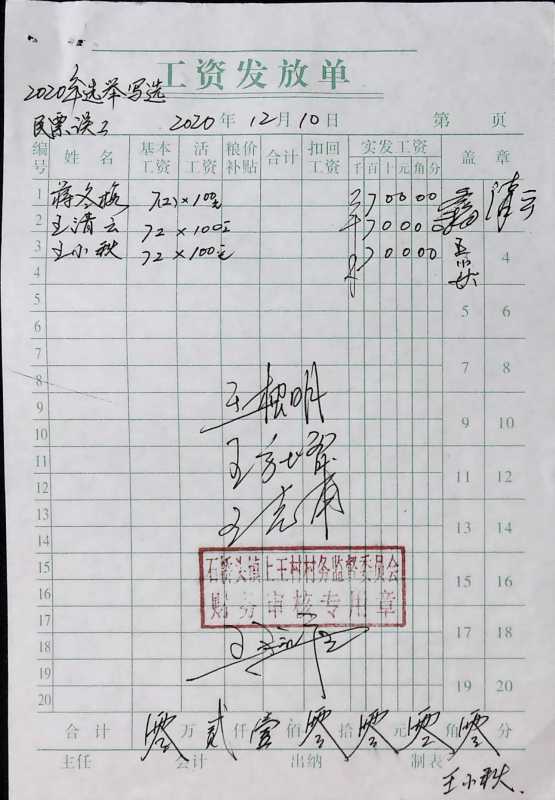 工资发放单
2020年选举写选
民票误工
2020年12月10日 第 页
编号 姓名 基本工资 活工资 粮价补贴 合计 扣回工资 实发工资 千百十元角分 盖章
1 蒋冬梅 7工×100元 70000 清云
2 王清云 7工×100元 70000
3 王小秋 7工×100元 70000 4
4
5 5 6
6
7 7 8
8
9 9 10
10
11 11 12
12
13 13 14
14
15 15 16
16
17 17 18
18
19 19 20
20
石桥头镇上王村村务监督委员会
财务审核专用章
合计 零万贰仟壹佰零拾零元零角零分
主任 会计 出纳 制表 王小秋